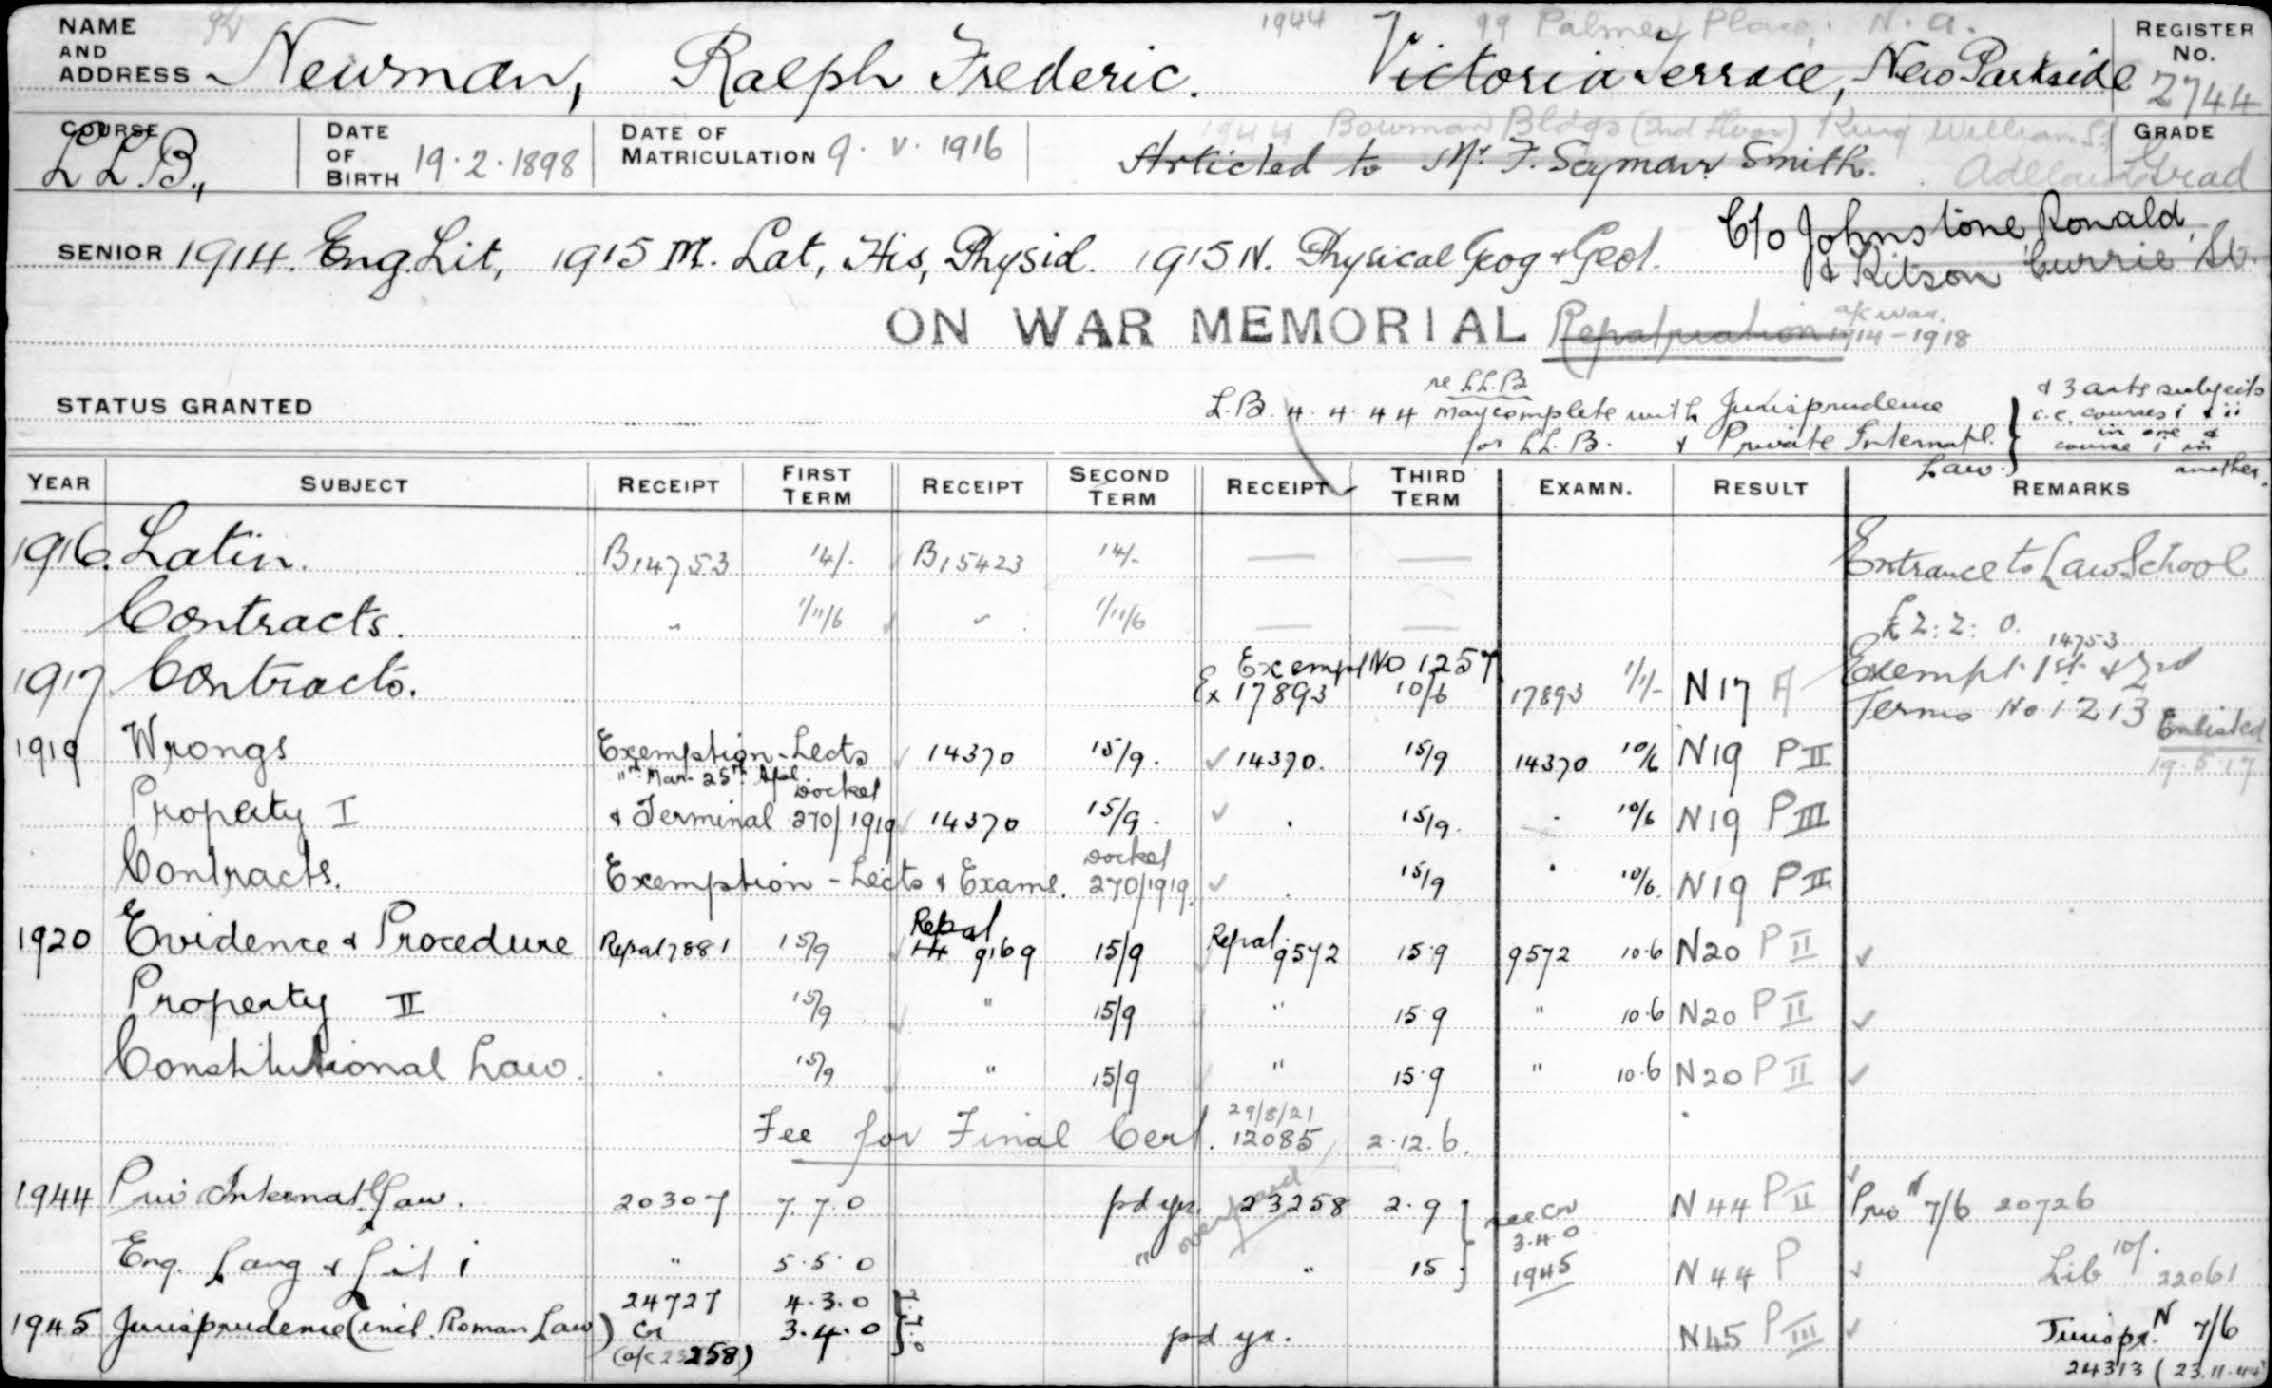 NAME AND ADDRESS Newman, Ralph Frederic. Victoria Terrace, New Parkside
1944 99 Palmer Place, N. A.
REGISTER No. 2744
COURSE LL.B., DATE OF BIRTH 19.2.1898 DATE OF MATRICULATION 9. V. 1916
1944 Bowman Bldgs (2nd floor) King William St. Adelaide
Articled to Mr. F. Seymour Smith.
GRADE Grad
SENIOR 1914. Eng. Lit, 1915 M. Lat, His, Physiol. 1915 N. Physical Geog + Geol.
C/o Johnstone, Ronald,
& Kitson Currie St.
ON WAR MEMORIAL Repatriation a/c war. 1914-1918
STATUS GRANTED
re LL.B
L.B. 4. 4. 44 may complete with Jurisprudence
for LL.B. & Private Internatl. Law.
& 3 arts subjects
i.e. courses i & ii
in one &
course i in
another.
YEAR SUBJECT RECEIPT FIRST TERM RECEIPT SECOND TERM RECEIPT THIRD TERM EXAMN. RESULT REMARKS
1916. Latin. B14753 14/- B15423 14/- — — Entrance to Law School
Contracts. " 1/11/6 " 1/11/6 — — £2:2:0. 14753
1917 Contracts. Exempt No 1257 Ex 17893 10/6 17893 1/1/- N17 F Exempt. 1st & 2nd Terms No 1213
Enlisted 19.5.17
1919 Wrongs Exemption - Lects 14370 15/9. 14370. 15/9 14370 10/6 N19 P II
Mar - 25th Apl. Docket
Property I & Terminal 270/1919 14370 15/9. . 15/9. . 10/6 N19 P III
Contracts. Exemption - Lects & Exams. Docket 270/1919. . 15/9 " 10/6. N19 P II
1920 Evidence & Procedure Repat 7881 15/9 Repat 14 9169 15/9 Repat 9572 15.9 9572 10.6 N20 P II
Property II . 15/9 " 15/9 " 15.9 " 10.6 N20 P II
Constitutional Law. . 15/9 " 15/9 " 15.9 " 10.6 N20 P II
Fee for Final Cert. 29/8/21 12085 2.12.6.
1944 Priv Internat. Law. 20307 7.7.0 pd yr. overpaid 23258 2.9 see Cr 3.4.0 N 44 P II Priv N 7/6 20726
Eng. Lang & Lit i " 5.5.0 " " 15 1945 N 44 P Lib 10/. 22061
1945 Jurisprudence (incl. Roman Law) 24727 4.3.0
Cr 3.4.0 7.7.0 pd yr. N45 P III Jurispr. N 7/6
(a/c 23258) 24313 (23.11.44)